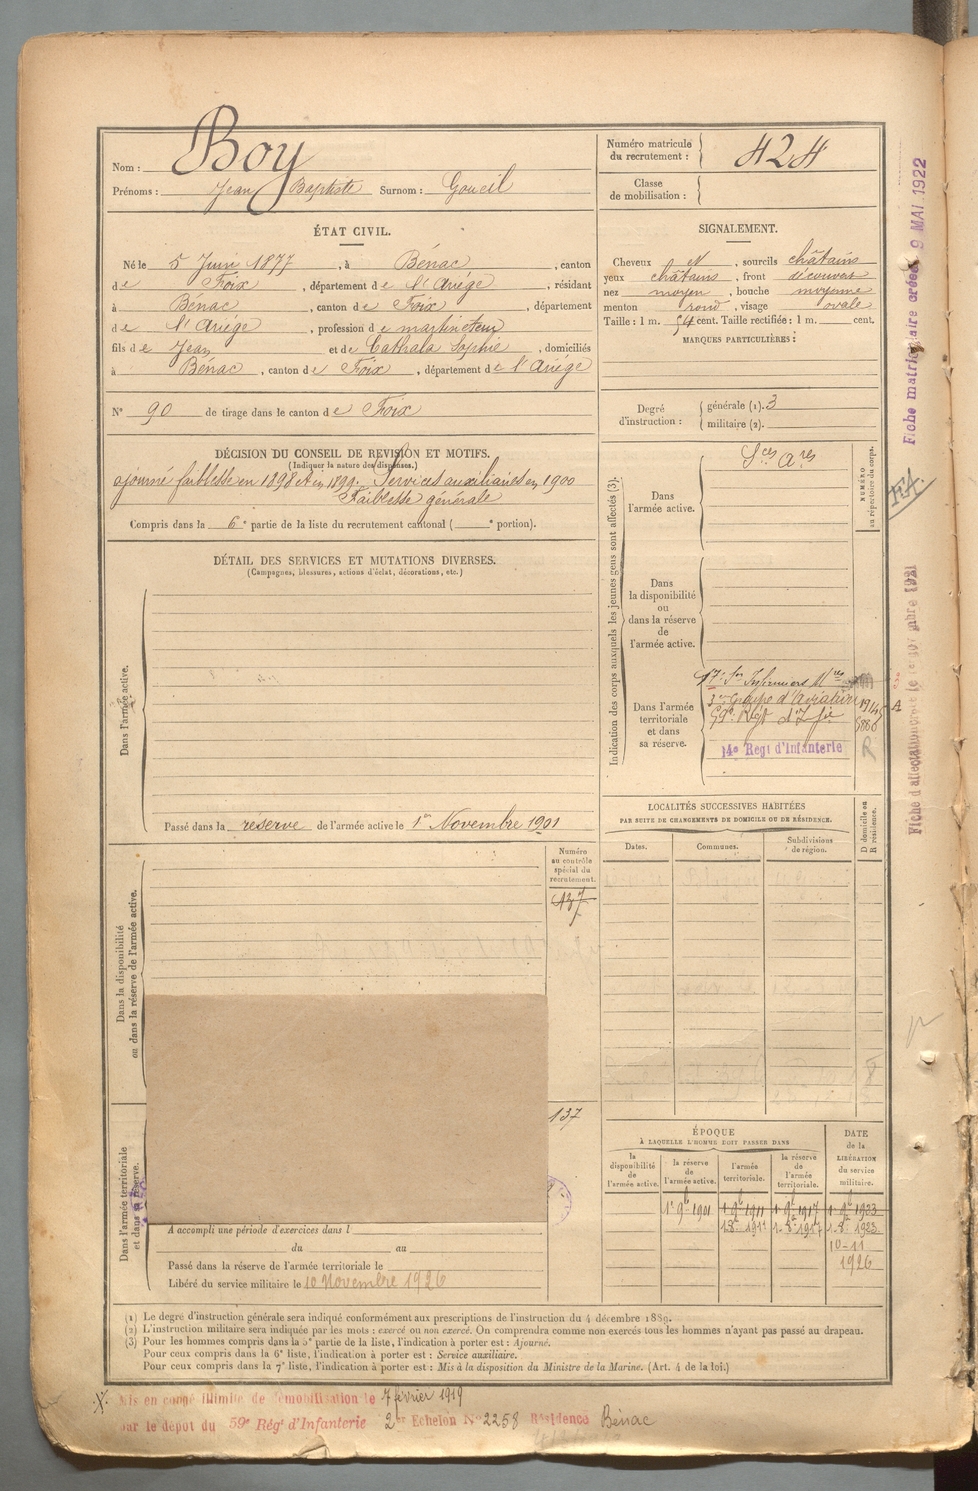 Nom : Boy
Prénoms : Jean Baptiste Surnom : Goueil
Numéro matricule du recrutement : 424
Classe de mobilisation :
ÉTAT CIVIL.
Né le 5 Juin 1877, à Bénac, canton
de Foix, département de l'Ariége, résidant
à Bénac, canton de Foix, département
de l'Ariége, profession de martineteur
fils de Jean et de Cathala Sophie, domiciliés
à Bénac, canton de Foix, département de l'Ariége
N° 90 de tirage dans le canton de Foix
SIGNALEMENT.
Cheveux N, sourcils châtains
yeux châtains, front découvert
nez moyen, bouche moyenne
menton rond, visage ovale
Taille : 1 m. 54 cent. Taille rectifiée : 1 m. cent.
MARQUES PARTICULIÈRES :
Degré d'instruction : générale (1). 3
militaire (2).
DÉCISION DU CONSEIL DE REVISION ET MOTIFS.
(Indiquer la nature des dispenses.)
ajourné faiblesse en 1898 et en 1899. Services auxiliaires en 1900
Faiblesse générale
Compris dans la 6e partie de la liste du recrutement cantonal ( e portion).
DÉTAIL DES SERVICES ET MUTATIONS DIVERSES.
(Campagnes, blessures, actions d'éclat, décorations, etc.)
Dans l'armée active.
Passé dans la réserve de l'armée active le 1er Novembre 1901
Dans la disponibilité ou dans la réserve de l'armée active.
Numéro au contrôle spécial du recrutement.
437
Dans l'armée territoriale et dans sa réserve.
137
A accompli une période d'exercices dans l
du au
Passé dans la réserve de l'armée territoriale le
Libéré du service militaire le 10 Novembre 1926
Indication des corps auxquels les jeunes gens sont affectés (3).
NUMÉRO au répertoire du corps.
Dans l'armée active.
Sces Ares
Dans la disponibilité ou dans la réserve de l'armée active.
Dans l'armée territoriale et dans sa réserve.
17e Son Infirmiers Mres
3e Groupe d'Aviation
59e Régt d'Inf ie
14e Régt d'Infanterie
R
LOCALITÉS SUCCESSIVES HABITÉES
PAR SUITE DE CHANGEMENTS DE DOMICILE OU DE RÉSIDENCE.
D domicile ou R résidence.
Dates. Communes. Subdivisions de région.
ÉPOQUE
À LAQUELLE L'HOMME DOIT PASSER DANS
DATE de la LIBÉRATION du service militaire.
la disponibilité de l'armée active. la réserve de l'armée active. l'armée territoriale. la réserve de l'armée territoriale.
1r 9b 1901 1r 9b 1911 1r 9b 1917 1r 9b 1923
1-8r 1911 1-8r 1917 1-8r 1923
10-11
1926
(1) Le degré d'instruction générale sera indiqué conformément aux prescriptions de l'instruction du 4 décembre 1889.
(2) L'instruction militaire sera indiquée par les mots : exercé ou non exercé. On comprendra comme non exercés tous les hommes n'ayant pas passé au drapeau.
(3) Pour les hommes compris dans la 5e partie de la liste, l'indication à porter est : Ajourné.
Pour ceux compris dans la 6e liste, l'indication à porter est : Service auxiliaire.
Pour ceux compris dans la 7e liste, l'indication à porter est : Mis à la disposition du Ministre de la Marine. (Art. 4 de la loi.)
Mis en congé illimité de démobilisation le 7 février 1919
par le dépôt du 59e Régt d'Infanterie 2er Echelon N° 2258 Résidence Bénac
Fiche matriculaire créée 9 MAI 1922
FA.
Fiche d'affectation créée le 1er novembre 1921
A